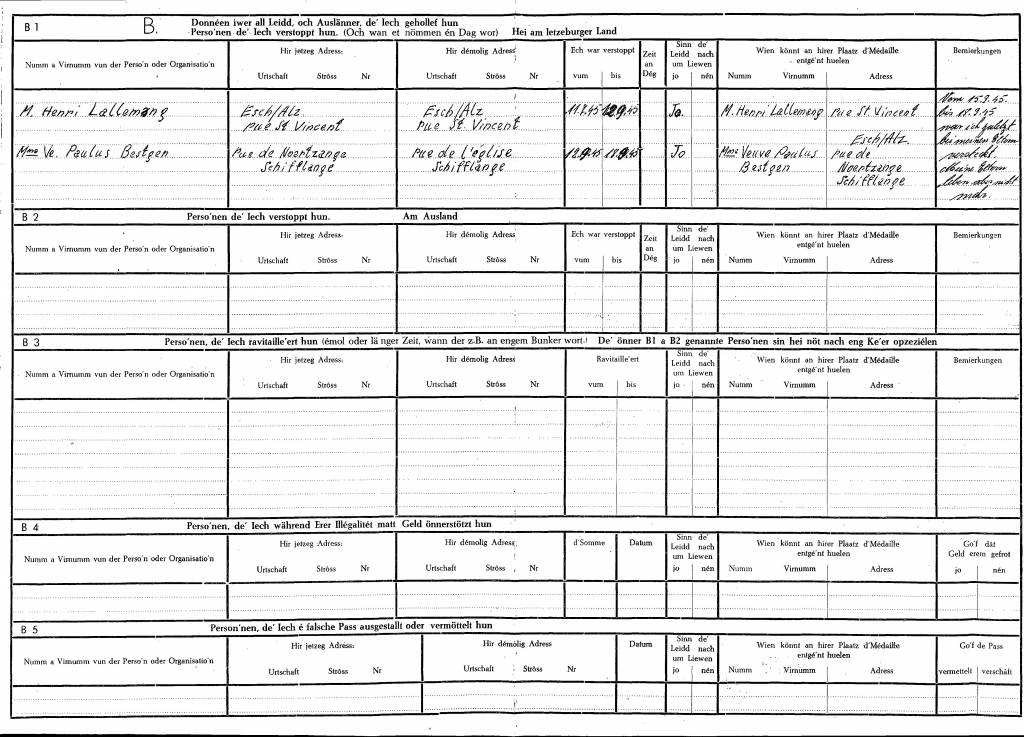 B 1 B. Donnéen iwer all Leidd, och Auslänner, de' Iech gehollef hun
Perso'nen de' Iech verstoppt hun. (Och wan et nömmen én Dag wor) Hei am letzeburger Land
Numm a Virnumm vun der Perso'n oder Organisatio'n
Hir jetzeg Adress:
Urtschaft Ströss Nr
Hir démolig Adress
Urtschaft Ströss Nr
Ech war verstoppt
vum bis
Zeit an Dég
Sinn de' Leidd nach um Liewen
jo nén
Wien könnt an hirer Plaatz d'Médaille entgé'nt huelen
Numm Virnumm Adress
Bemierkungen
M. Henri Lallemang Esch/Alz Esch/Alz 11.7.45 12.9.45 Jo. M. Henri Lallemang rue St. Vincent
rue St Vincent rue St. Vincent Esch/Alz.
Mme Ve. Paulus Bestgen rue de Noertzange rue de l'église 12.9.45 Jo Mme Veuve Paulus rue de
Schifflange Schifflange Bestgen Noertzange
Schifflange
Vom 15.9.45.
bis 18.9.45
war ich
bei meinen Eltern
versteckt.
Meine Eltern
leben aber nicht
mehr.
B 2 Perso'nen de' Iech verstoppt hun. Am Ausland
Numm a Virnumm vun der Perso'n oder Organisatio'n
Hir jetzeg Adress:
Urtschaft Ströss Nr
Hir démolig Adress
Urtschaft Ströss Nr
Ech war verstoppt
vum bis
Zeit an Dég
Sinn de' Leidd nach um Liewen
jo nén
Wien könnt an hirer Plaatz d'Médaille entgé'nt huelen
Numm Virnumm Adress
Bemierkungen
B 3 Perso'nen, de' Iech ravitaille'ert hun (émol oder länger Zeit, wann der z.B. an engem Bunker wort.) De' önner B1 a B2 genannte Perso'nen sin hei nöt nach eng Ke'er opzeziélen
Numm a Virnumm vun der Perso'n oder Organisatio'n
Hir jetzeg Adress:
Urtschaft Ströss Nr
Hir démolig Adress
Urtschaft Ströss Nr
Ravitaille'ert
vum bis
Sinn de' Leidd nach um Liewen
jo nén
Wien könnt an hirer Plaatz d'Médaille entgé'nt huelen
Numm Virnumm Adress
Bemierkungen
B 4 Perso'nen, de' Iech während Erer Illégalitét matt Geld önnerstötzt hun
Numm a Virnumm vun der Perso'n oder Organisatio'n
Hir jetzeg Adress:
Urtschaft Ströss Nr
Hir démolig Adress
Urtschaft Ströss Nr
d'Somme
Datum
Sinn de' Leidd nach um Liewen
jo nén
Wien könnt an hirer Plaatz d'Médaille entgé'nt huelen
Numm Virnumm Adress
Go'f dát Geld erem gefrot
jo nén
B 5 Person'nen, de' Iech é falsche Pass ausgestallt oder vermöttelt hun
Numm a Virnumm vun der Perso'n oder Organisatio'n
Hir jetzeg Adress:
Urtschaft Ströss Nr
Hir démolig Adress
Urtschaft Ströss Nr
Datum
Sinn de' Leidd nach um Liewen
jo nén
Wien könnt an hirer Plaatz d'Médaille entgé'nt huelen
Numm Virnumm Adress
Go'f de Pass
vermettelt verscháft